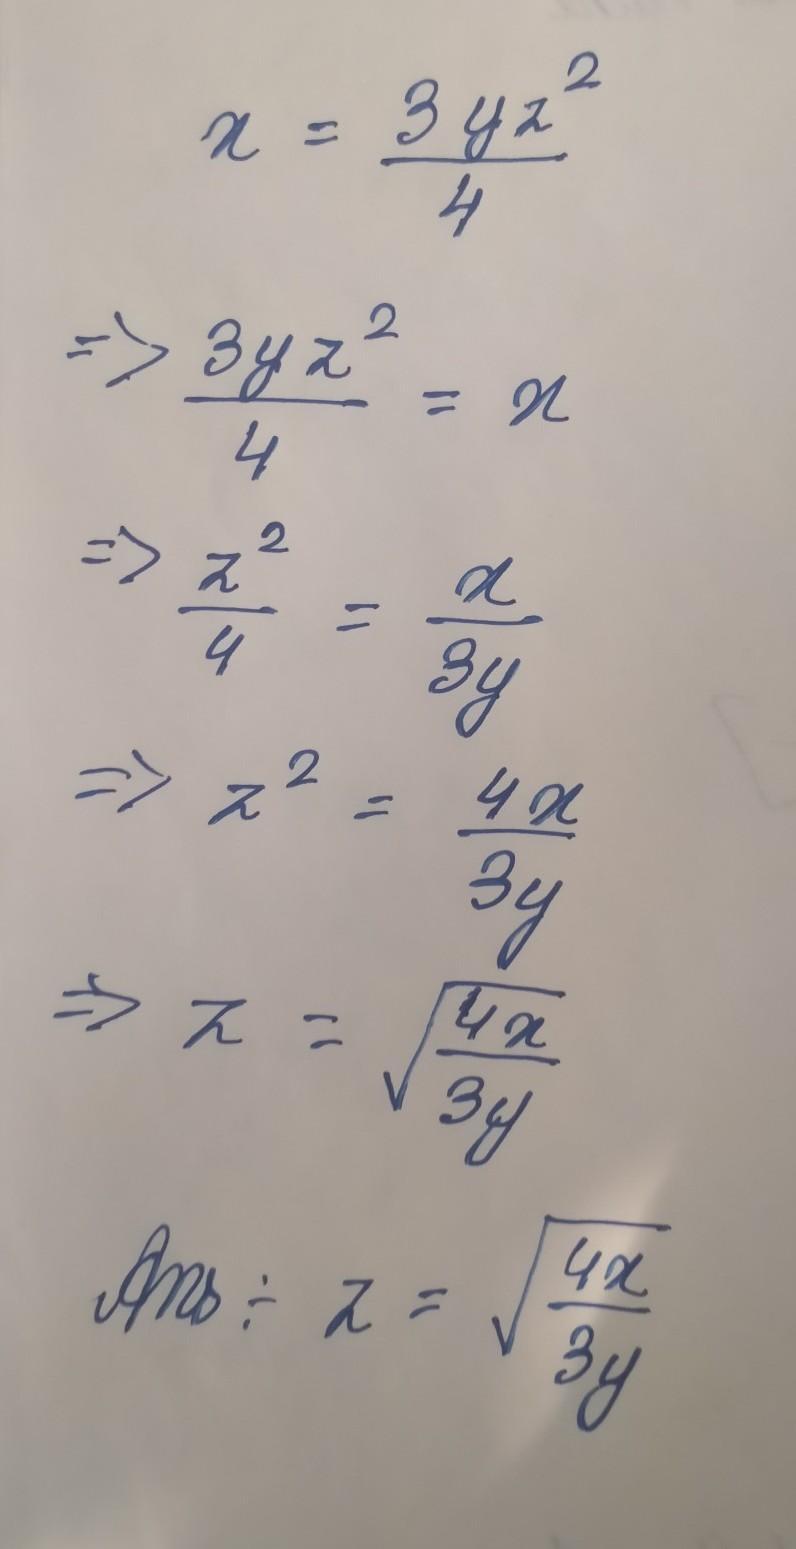 x = 3yz²/4
=> 3yz²/4 = x
=> z²/4 = x/3y
=> z² = 4x/3y
=> z = √(4x/3y)
Ans÷ z = √(4x/3y)